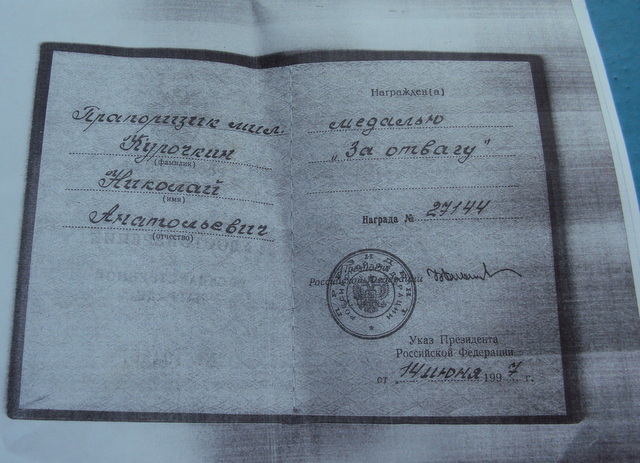 Прапорщик мил.
Курочкин
(фамилия)
Николай
(имя)
Анатольевич
(отчество)
Награжден(а)
медалью
„За отвагу"
Награда № 27144
Президент
Российской Федерации
Указ Президента
Российской Федерации
от 14 июня 1997 г.